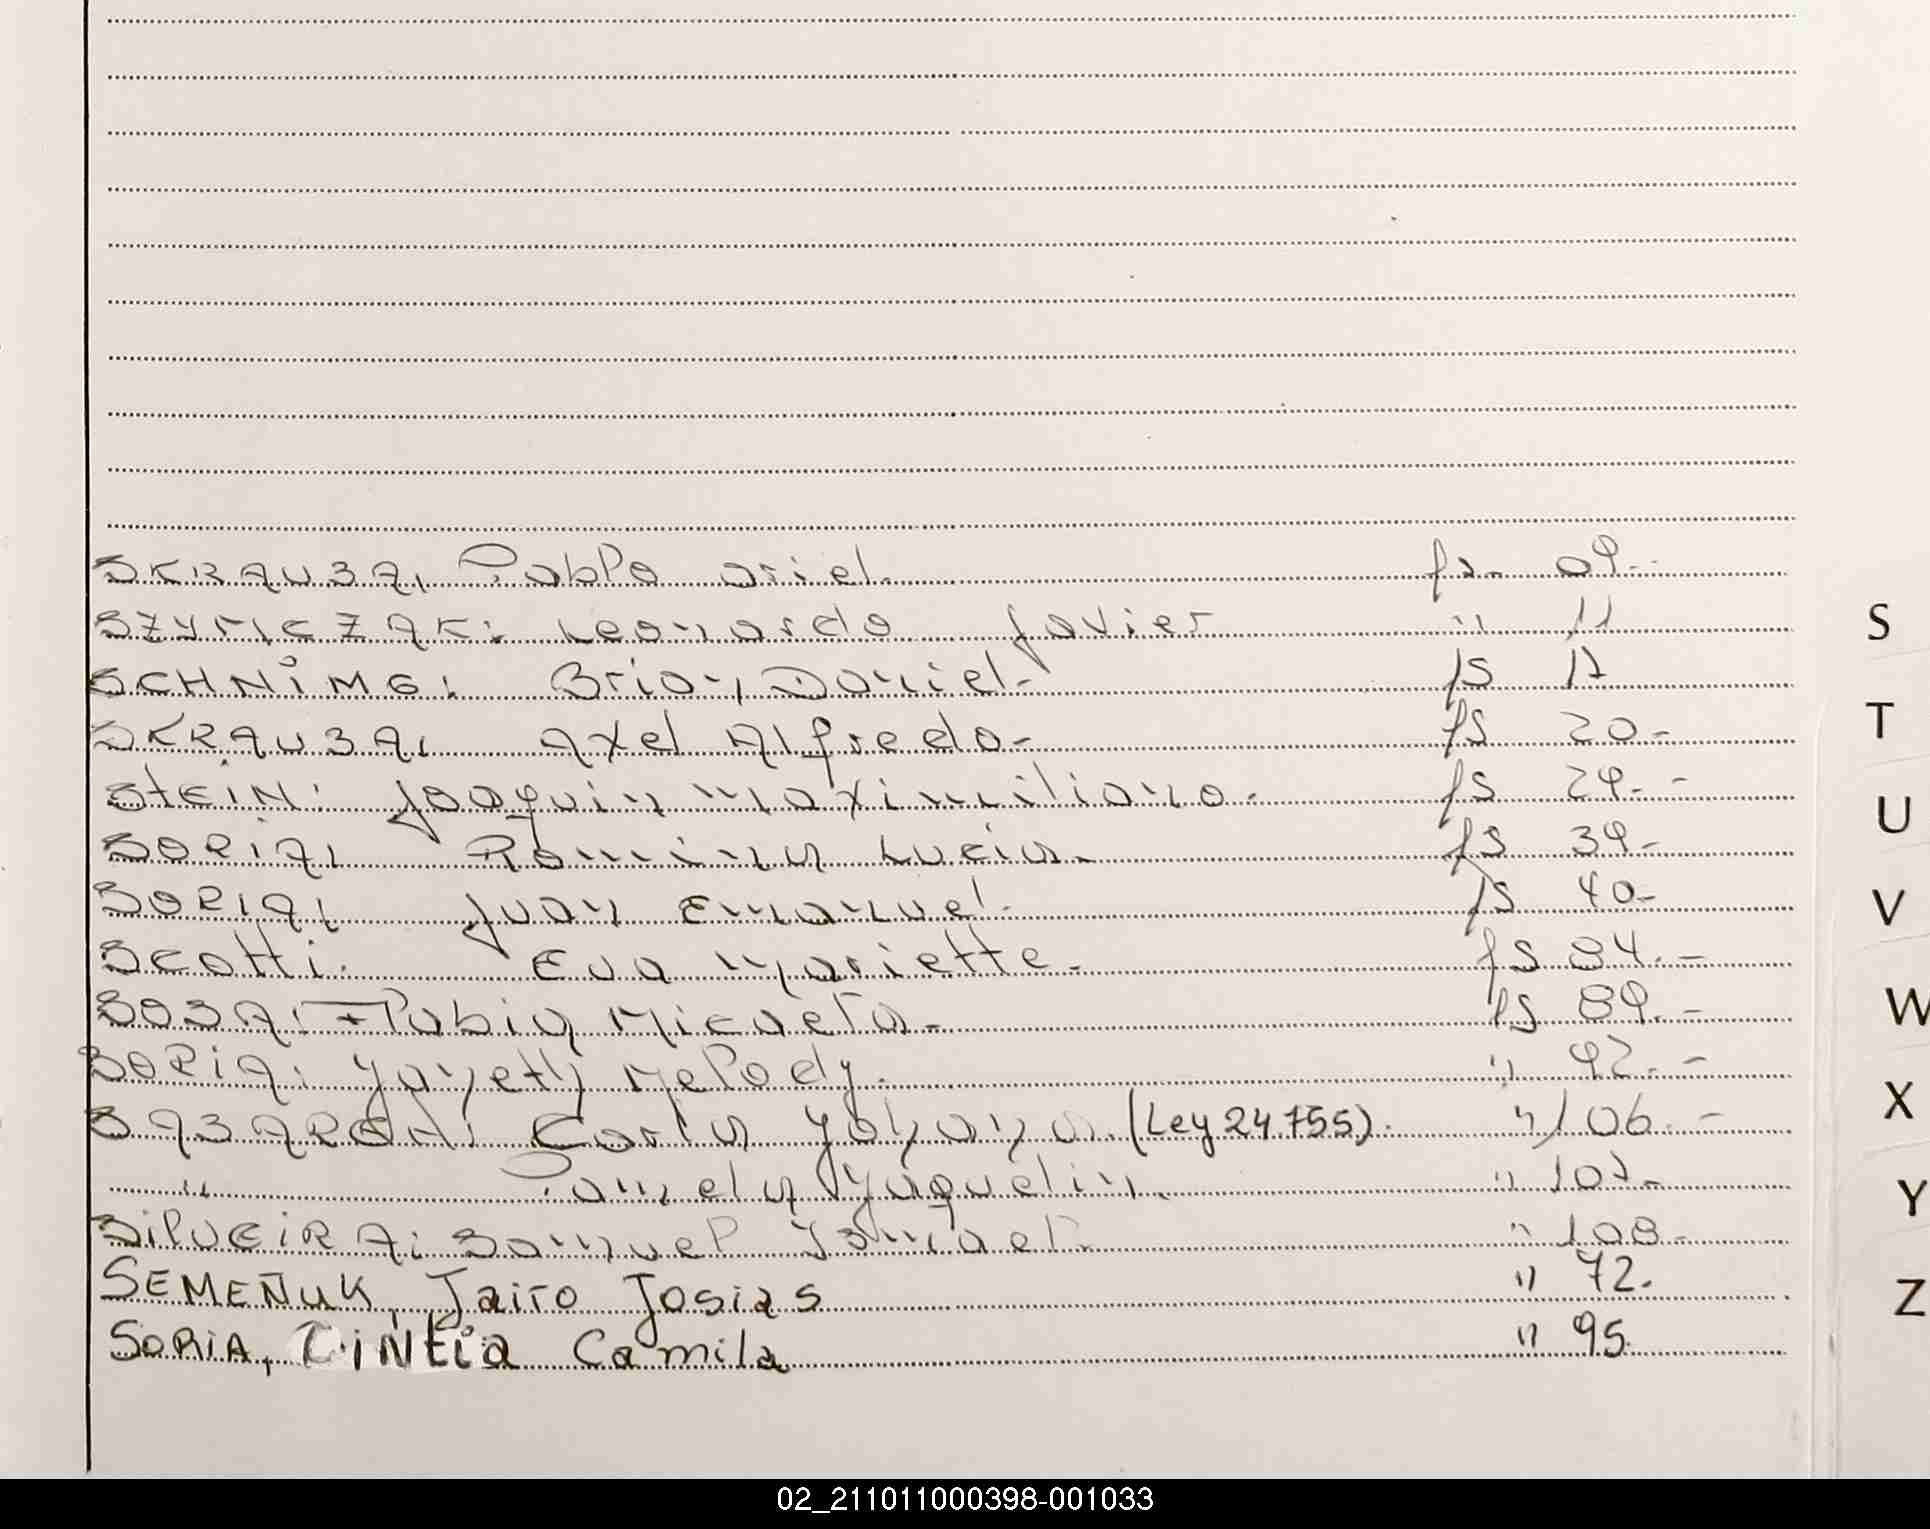 SKRAUSA, Pablo Ariel. fs. 09.-
SZYMCZAK: Leonardo Javier " 11
SCHNIMG: Brian Daniel.- fs 17
SKRAUSA, Axel Alfredo.- fs 20.-
StEiN: Joaquin Maximiliano. fs 29.-
SORiA, Romina Lucia.- fs 39.-
SORIA, Juan Emanuel.- fs 40.-
Scotti. Eva Mariette.- fs 84.-
SOSA: Fabia Micaela.- fs 89.-
SORiA: Yaneth Melody. " 92.-
Carla Yohana. (Ley 24.755). " 106.-
" Pamela Yaquelin. " 107.-
SilVEIRA: Samuel Ismael. " 108.-
SEMEÑUK, Jairo Josias " 72.
SORiA, CiNtia Camila " 95.
S
T
U
V
W
X
Y
Z
02_211011000398-001033